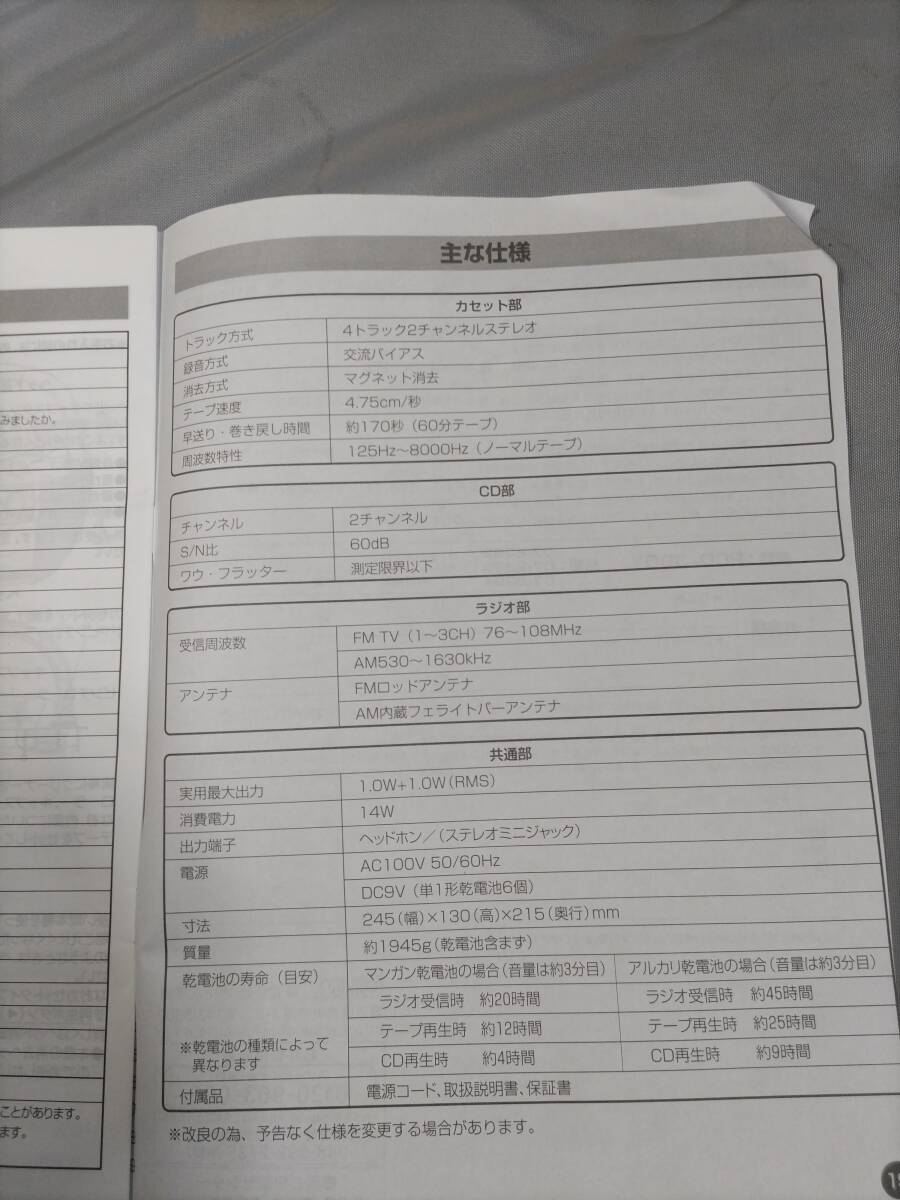 みましたか。
ことがあります。
ます。
主な仕様
カセット部
トラック方式 4トラック2チャンネルステレオ
録音方式 交流バイアス
消去方式 マグネット消去
テープ速度 4.75cm/秒
早送り・巻き戻し時間 約170秒（60分テープ）
周波数特性 125Hz～8000Hz（ノーマルテープ）
CD部
チャンネル 2チャンネル
S/N比 60dB
ワウ・フラッター 測定限界以下
ラジオ部
受信周波数 FM TV（1～3CH）76～108MHz
AM530～1630kHz
アンテナ FMロッドアンテナ
AM内蔵フェライトバーアンテナ
共通部
実用最大出力 1.0W+1.0W（RMS）
消費電力 14W
出力端子 ヘッドホン／（ステレオミニジャック）
電源 AC100V 50/60Hz
DC9V（単1形乾電池6個）
寸法 245（幅）×130（高）×215（奥行）mm
質量 約1945g（乾電池含まず）
乾電池の寿命（目安） マンガン乾電池の場合（音量は約3分目） アルカリ乾電池の場合（音量は約3分目）
ラジオ受信時 約20時間 ラジオ受信時 約45時間
テープ再生時 約12時間 テープ再生時 約25時間
※乾電池の種類によって
異なります
CD再生時 約4時間 CD再生時 約9時間
付属品 電源コード、取扱説明書、保証書
※改良の為、予告なく仕様を変更する場合があります。